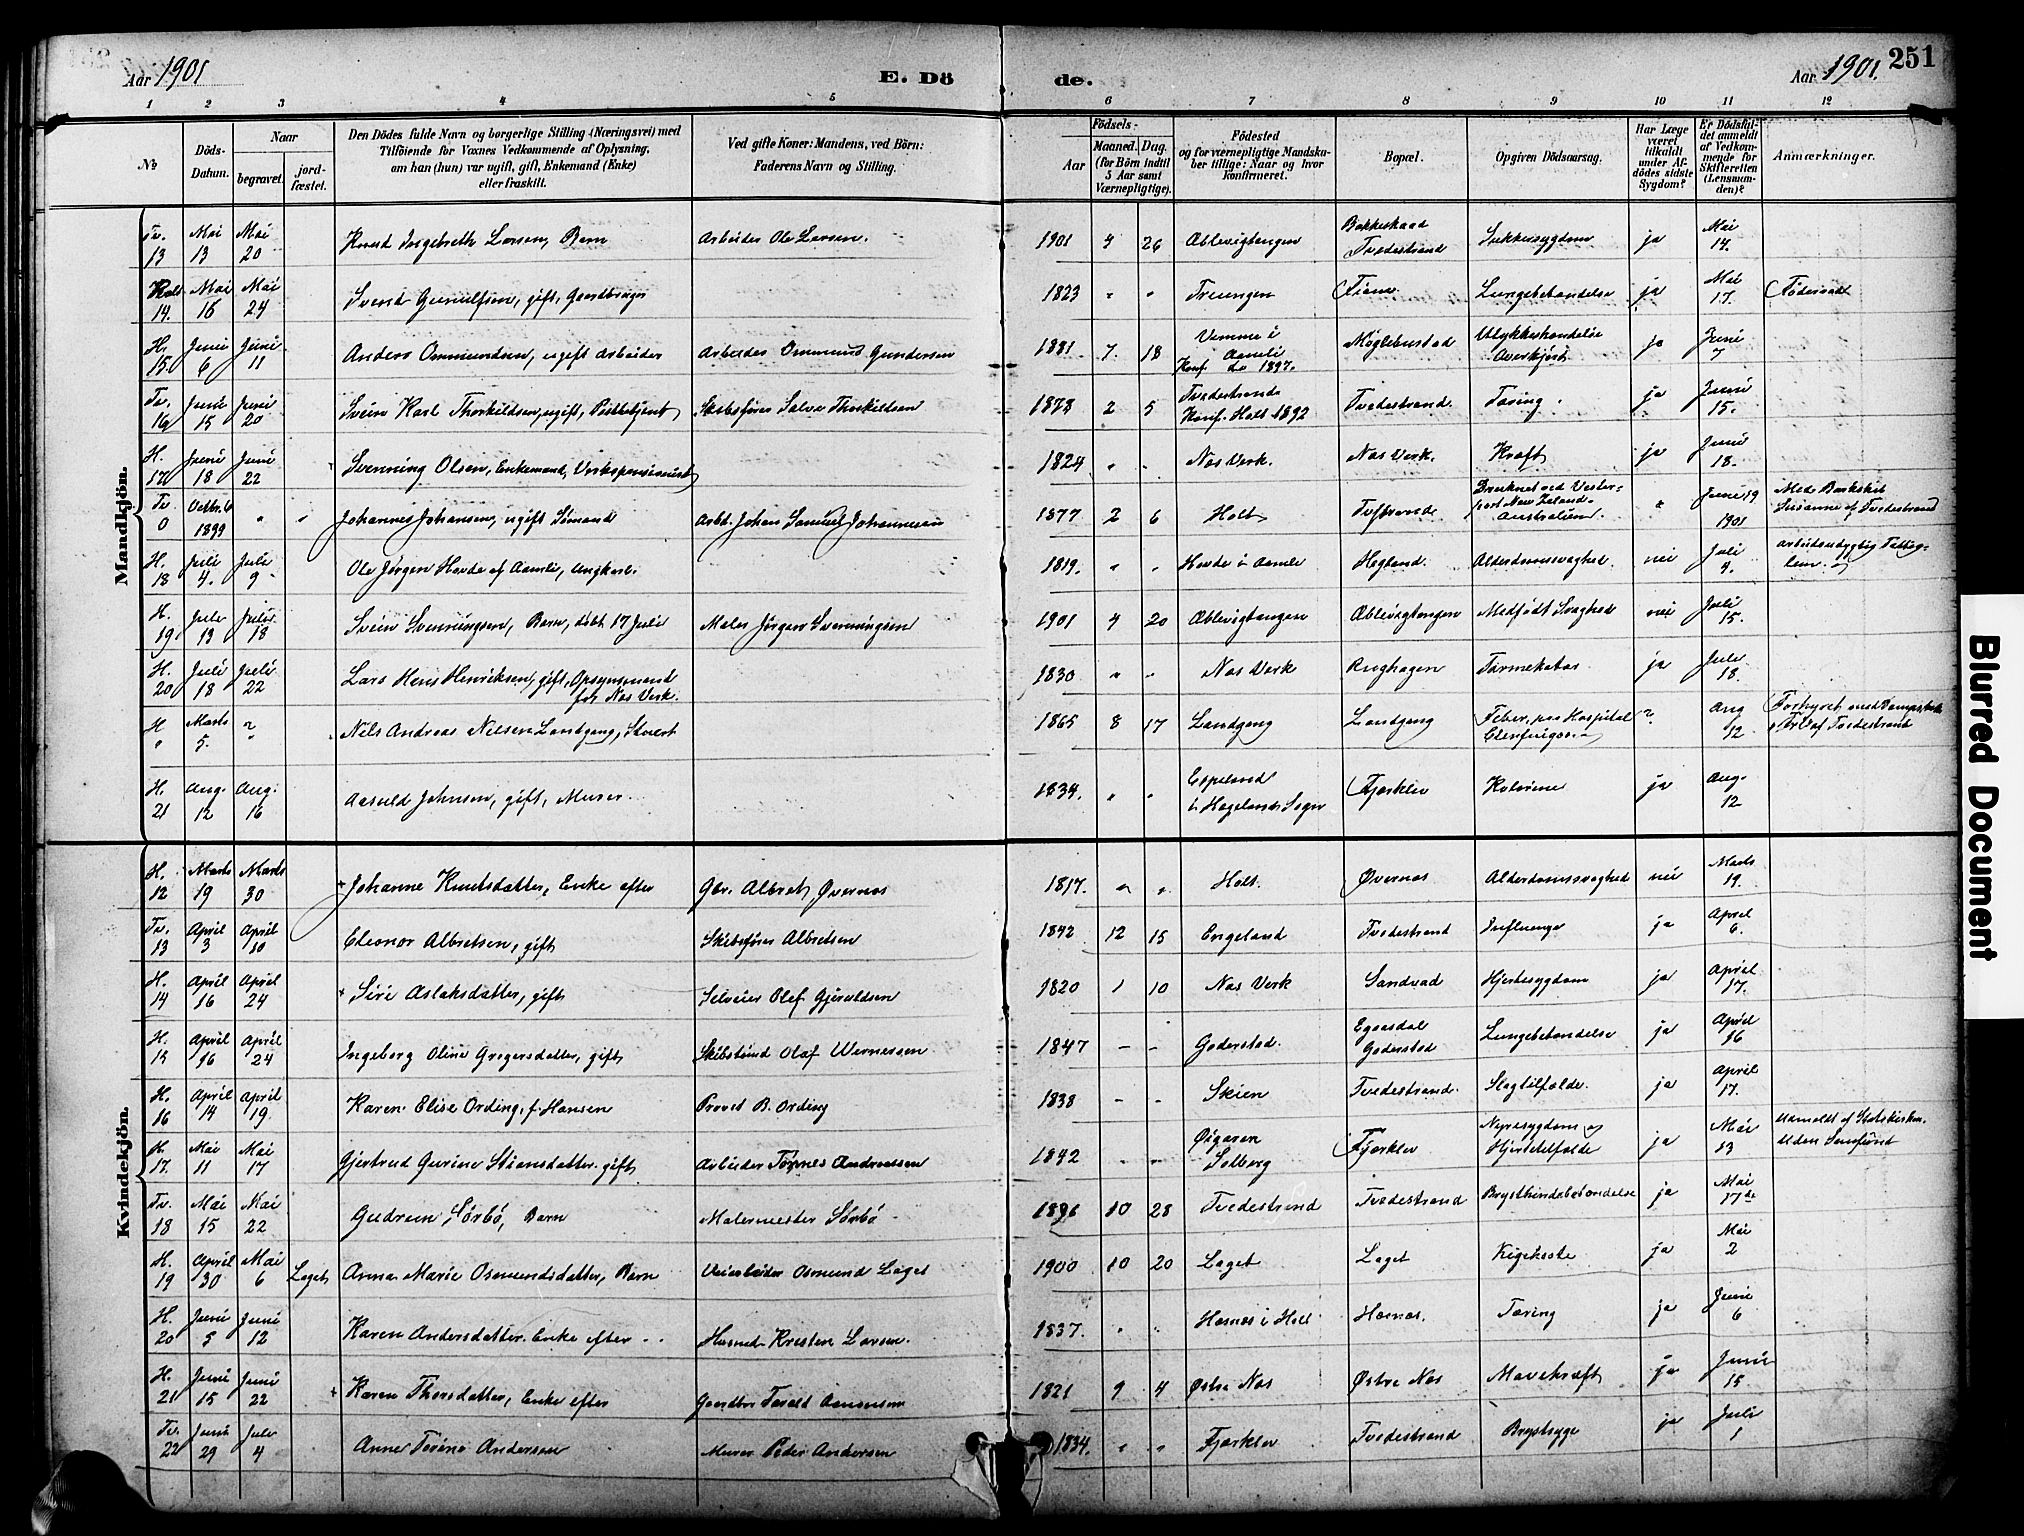 Aar 1901
E. Dö
de.
Aar 1901.
251
1 2 3 4 5 6 7 8 9 10 11 12
No
Döds-Datum.
Naar
begravet.
jord-fæstet.
Den Dödes fulde Navn og borgerlige Stilling (Næringsvei) med
Tilföiende for Voxnes Vedkommende af Oplysning,
om han (hun) var ugift, gift, Enkemand (Enke)
eller fraskilt.
Ved gifte Koner: Mandens, ved Börn:
Faderens Navn og Stilling.
Födsels-
Aar
Maaned. Dag.
(for Börn indtil
5 Aar samt
Værnepligtige).
Födested
og for værnepligtige Mandska-
ber tillige: Naar og hvor
konfirmeret.
Bopæl.
Opgiven Dödsaarsag.
Har Læge
været
tilkaldt
under Af-
dödes sidste
Sygdom?
Er Dödsfal-
det anmeldt
af Vedkom-
mende for
Skifteretten
(Lensman-
den)?
Anmærkninger.
Mandkjön.
Tv. 13 Mai 13 Mai 20 Knud Ingebreth Larsen, Barn Arbeider Ole Larsen. 1901 4 26 Tvedestrand Sukkersygdom ja Mai 14.
Holt 14. Mai 16 Mai 24 Svend Gunulfsen, gift, Gaardbruger 1823 " " Treungen Fiane Lungebetændelse ja Mai 17. Föderaad
H. 15. Juni 6 Juni 11 Anders Ommundsen, ugift Arbeider Arbeider Ommund Gundersen 1881 7. 18 Vimme i Aamli Konf. do 1897. Möglebustad Ulykkeshændelse Overkjört ja Juni 7
Tv. 16 Juni 15 Juni 20 Svein Karl Thorkildsen, ugift, Postbetjent Skibsförer Salve Thorkildsen 1878 2 5 Tvedestrand Konf. Holt 1892 Tvedestrand. Tæring. ja Juni 15.
H. 17 Juni 18 Juni 22 Svenning Olsen, Enkemand, Verkspensionist 1824 " . Næs Verk. Næs Verk. Kræft ja Juni 18.
Tv 0 Octbr. 6 1899 " " Johannes Johansen, ugift Sömand Arbd. Johan Samuel Johannesen 1877 2 6 Holt Druknet ved Vester-port New Zeland. Australien. " Juni 19 1901 Med Barkskib Susanne af Tvedestrand
H. 18 Juli 4. Juli 9 Ole Jörgen Hovde af Aamli, Ungkarl. 1819. " " Hovde i Aamli Hegland. Alderdomssvaghed. nei Juli 4. arbeidsudygtig Fattig-lem.
H. 19 Juli 13 Juli 18 Svein Svenningsen, Barn, döbt 17 Juli Maler Jörgen Svenningsen 1901 4 20 Æblevigtangen Æblevigtangen Medfödt Svaghed nei Juli 15.
H. 20 Juli 18 Juli 22 Lars Hans Henriksen, gift, Opsynsmand for Næs Verk. 1830 " " Næs Verk Rughagen Tarmekatar ja Juli 18.
H " Marts 5. " Nils Andreas Nielsen Landgang, Stuert 1865 8 17 Landgang Landgang Feber, paa Hospital ? Aug 12 Forhyret med Dampskib af Tvedestrand
H. 21 Aug. 12 Aug. 16 Aasuld Johnsen, gift, Murer. 1834. " " Espeland i Hægelands Sogn Fjærkleiv Kolerine ja Aug. 12
Kvindekjön.
H. 12 Marts 19 Marts 30 + Johanne Knutsdatter, Enke efter Gbr. Albret Övernæs 1817. " " Holt. Övernæs Alderdomssvaghed nei Marts 19.
Tv. 13 April 3 April 10 Eleonor Albretsen, gift Skibsförer Albretsen 1842 12 15 Engeland Tvedestrand Influenza ja April 6.
H. 14 April 16 April 24 + Siri Aslaksdatter, gift Selveier Olef Gjeruldsen 1820 1 10 Næs Verk Sandvad Hjertesygdom ja April 17.
H. 15 April 16 April 24 Ingeborg Oline Gregersdatter, gift Skibstömd Olaf Wernersen 1847 - - Goderstad. Egeasdal Goderstad Lungebetændelse ja April 16
H. 16 April 14 April 19. Karen Elise Ording, f. Hansen Provst B. Ording 1838 - - Skien Tvedestrand. Slagtilfælde. ja April 17.
H. 17. Mai 11 Mai 17 Gjertrud Gurine Stiansdatter, gift Arbeider Tönnes Andreassen 1842 " " Öigaren Solberg Fjærkleiv Nyresygdom og Hjertetilfælde ja Mai 13 Udmeldt af Statskirken. Uden Samfund
Tv. 18 Mai 15 Mai 22 Gudrun Sörbö, Barn Malermester Sörbö 1896 10 28 Tvedestrand Tvedestrand Brysthindebetændelse ja Mai 17de
H. 19 April 30 Mai 6 Laget Anna Marie Osmundsdatter, Barn Veiarbeider Osmund Laget 1900 10 20 Laget Laget Kighoste ja Mai 2
H. 20 Juni 5 Juni 12 Karen Andersdatter. Enke efter Husmd. Kristen Larsen. 1837. " " Hesnæs i Holt Hesnæs. Tæring ja Juni 6
H. 21 Juni 15 Juni 22 + Karen Thorsdatter, Enke efter Gaardbr. Tarald Aanonsen 1821 9 4 Östre Næs Östre Næs Mavekræft ja Juni 15
Tv. 22 Juni 29 Juli 4 Anne Terine Andersen Murer Peder Andersen 1834. " " Fjærkleiv Tvedestrand Brystsyge ja Juli 1
Blurred Document